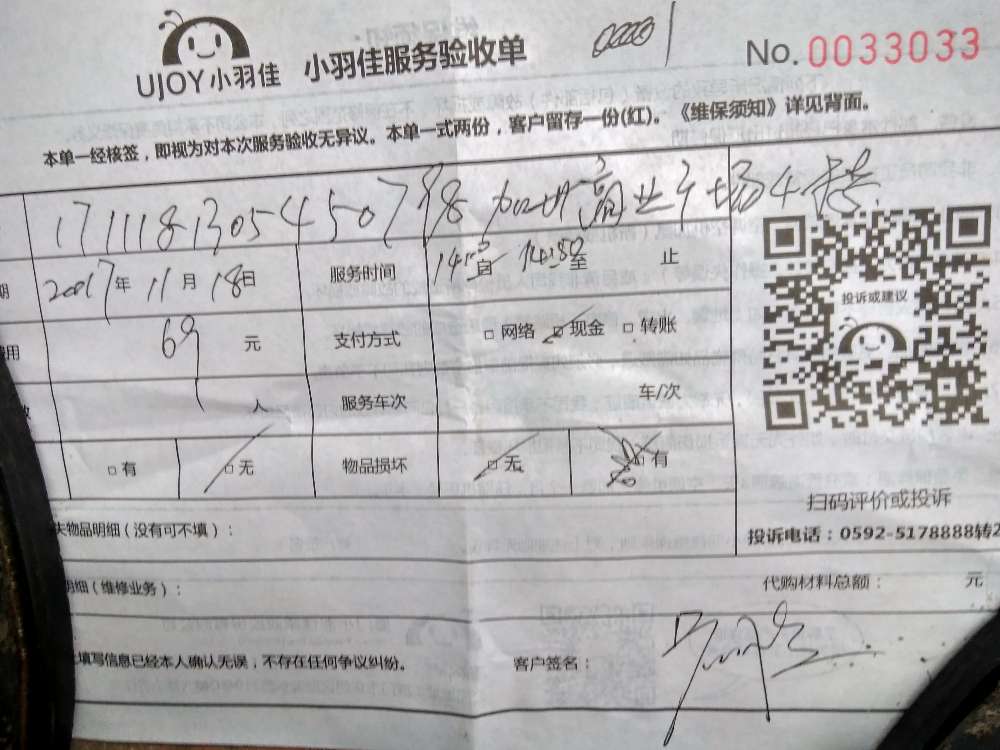 UJOY小羽佳 小羽佳服务验收单 No.0033033
本单一经核签，即视为对本次服务验收无异议。本单一式两份，客户留存一份(红)。《维保须知》详见背面。
商业广场4楼
期 2017年 11月 18日 服务时间 自 至 止
费用 69 元 支付方式 □网络 □现金 □转账
投诉或建议
人 服务车次 车/次
□有 □无 物品损坏 □无 □有
扫码评价或投诉
失物品明细（没有可不填）：
投诉电话：0592-5178888转2
明细（维修业务）： 代购材料总额： 元
填写信息已经本人确认无误，不存在任何争议纠纷。 客户签名：